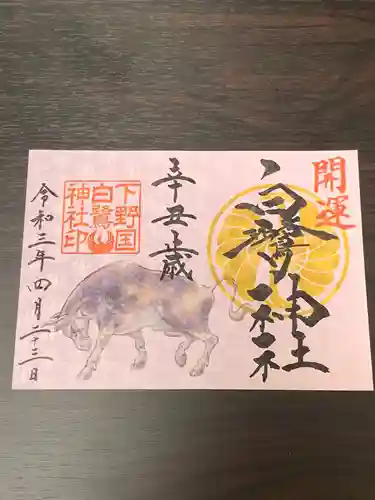 開運
白鷺神社
辛丑歳
下野国
白鷺
神社印
令和三年四月二十三日